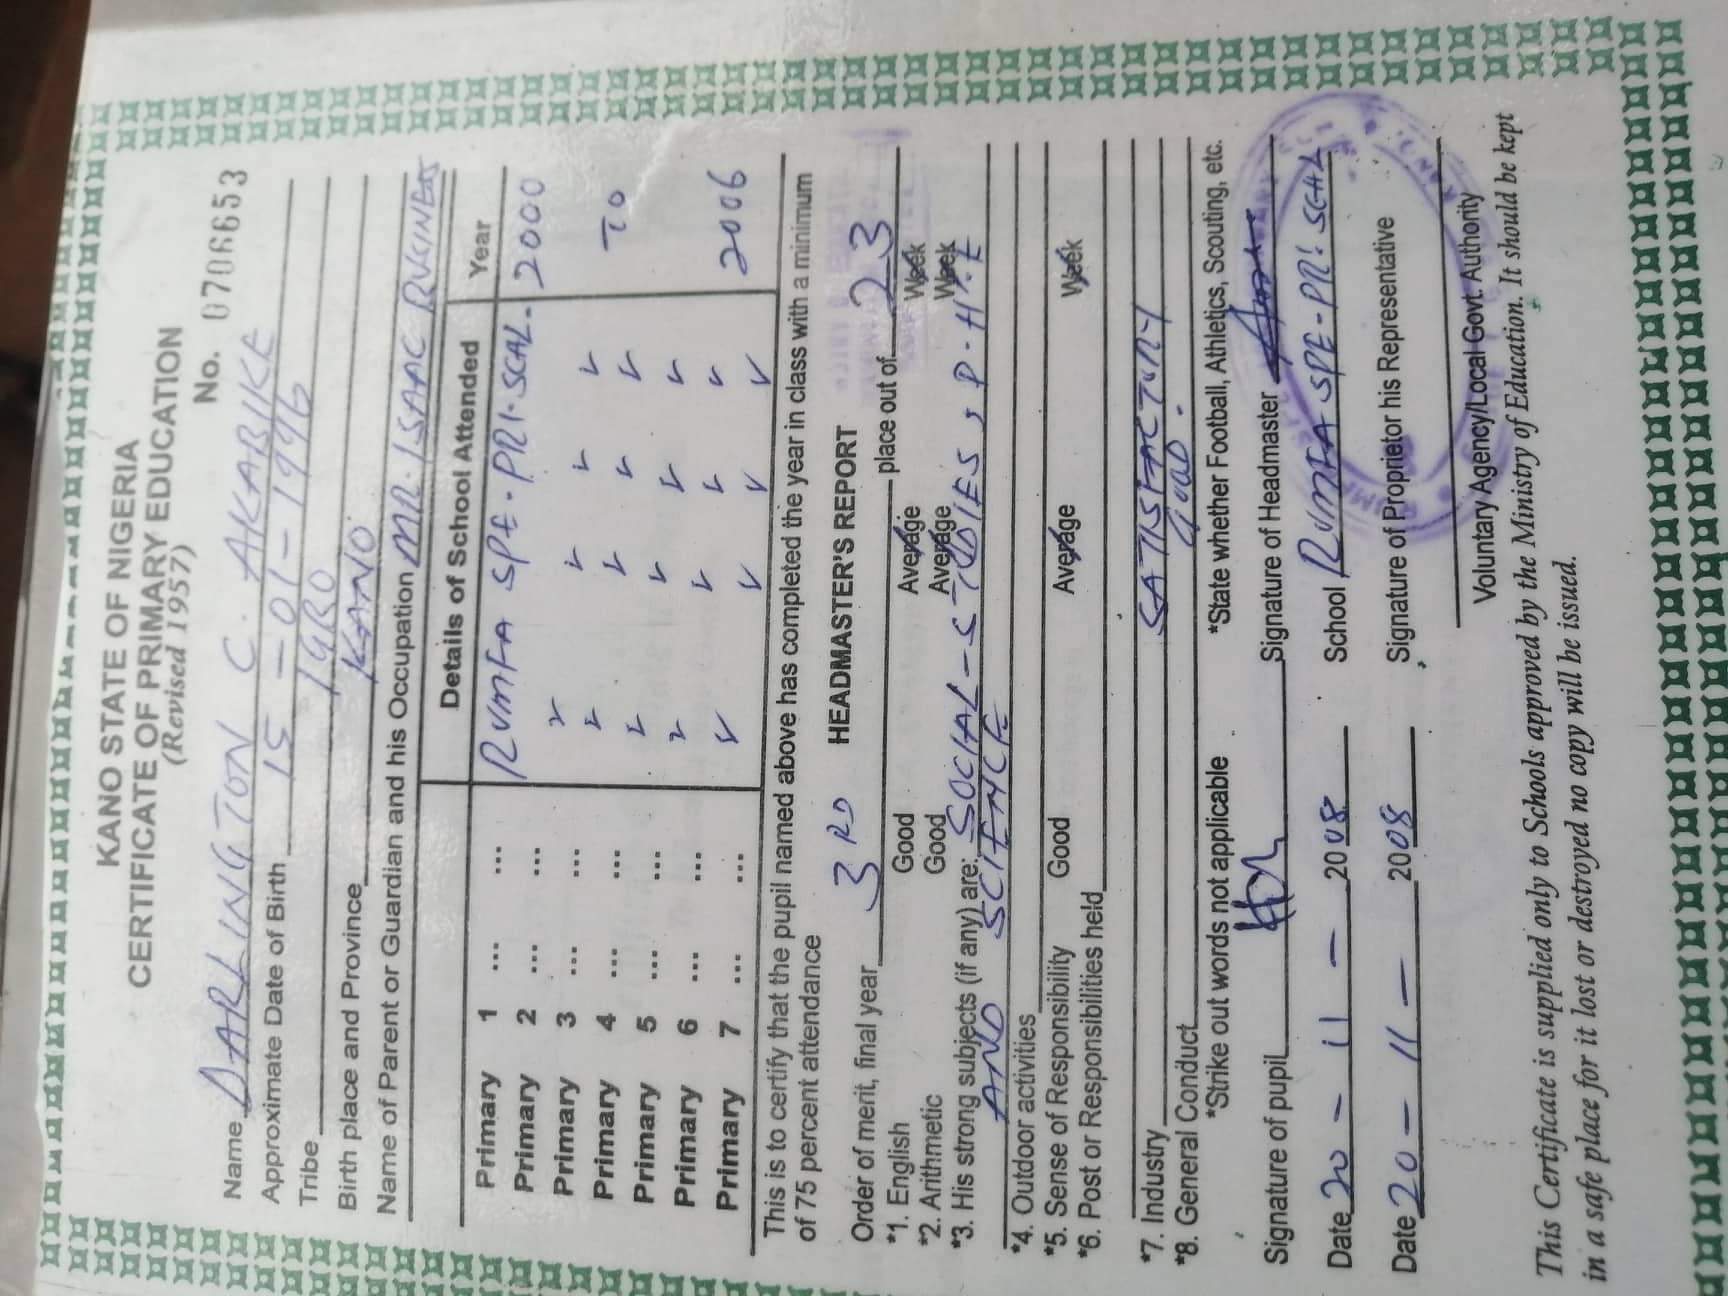 KANO STATE OF NIGERIA
CERTIFICATE OF PRIMARY EDUCATION
(Revised 1957)
No. 0706653
Name DARLINGTON C. AKABIKE
Approximate Date of Birth 15 - 01 - 1996
Tribe IGBO
Birth place and Province KANO
Name of Parent or Guardian and his Occupation MR. ISAAC
Details of School Attended Year
Primary 1 ... ... RUMFA SPE. PRI. SCHL. 2000
Primary 2 ... ...
Primary 3 ... ...
Primary 4 ... ... TO
Primary 5 ... ...
Primary 6 ... ...
Primary 7 ... ... 2006
This is to certify that the pupil named above has completed the year in class with a minimum
of 75 percent attendance
HEADMASTER'S REPORT
Order of merit, final year 3RD place out of 23
*1. English Good Average Week
*2. Arithmetic Good Average Week
*3. His strong subjects (if any) are: SOCIAL-STUDIES, P.H.E
AND SCIENCE
*4. Outdoor activities
*5. Sense of Responsibility Good Average Week
*6. Post or Responsibilities held
*7. Industry SATISFACTORY
*8. General Conduct GOOD.
*Strike out words not applicable *State whether Football, Athletics, Scouting, etc.
Signature of pupil Signature of Headmaster
Date 20 - 11 - 2008 School RUMFA SPE-PRI. SCHL
Date 20 - 11 - 2008 Signature of Proprietor his Representative
Voluntary Agency/Local Govt. Authority
This Certificate is supplied only to Schools approved by the Ministry of Education. It should be kept
in a safe place for it lost or destroyed no copy will be issued.